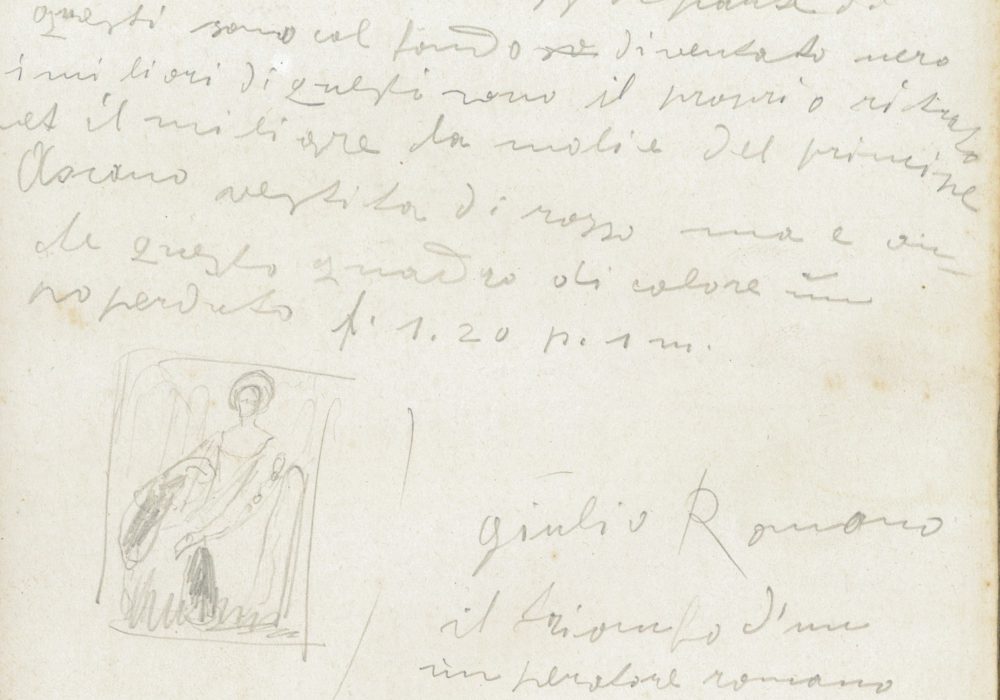 questi sono col fondo diventato nero
i miliori di questi sono il proprio ritrato
et il miliore la molie del principe
Ascano vestita di rosso ma e an-
che questo quadro di colore un
po perduto f. 1.20 p. 1 m.
giulio Romano
il trionfo d'un
imperatore romano